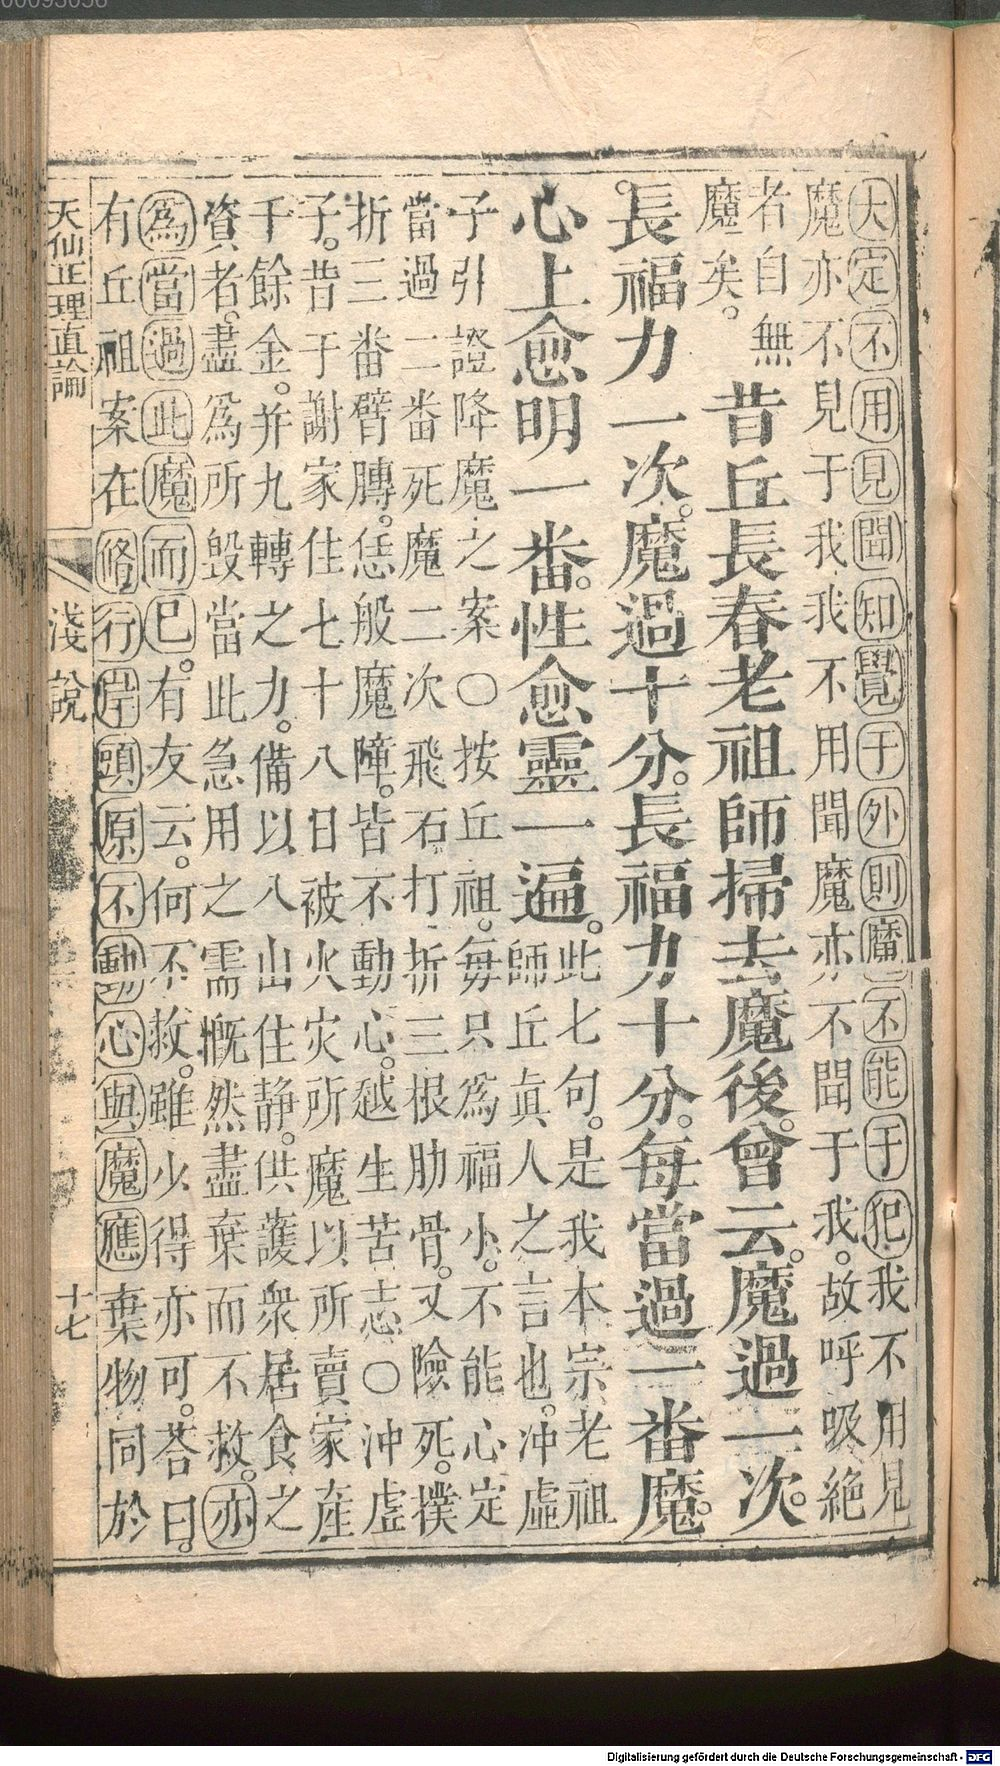 大定不用見聞知覺于外則魔不能于犯我不用見
魔亦不見于我我不用聞魔亦不聞于我。故呼吸絕
者自無
魔矣。
昔丘長春老祖師掃去魔後。曾云。魔過一次。
長福力一次。魔過十分。長福力十分。每當過一番魔。
心上愈明一番。性愈靈一遍。
此七句。是我本宗老祖
師丘眞人之言也。冲虛
子引證降魔之案○按丘祖。每只爲福小。不能心定
當過二番死魔二次飛石打折三根肋骨。又險死。撲
折三番臂膊。恁般魔障。皆不動心。越生苦志○冲虛
子。昔于謝家住七十八日被火灾所魔以所賣家產
千餘金。并九轉之力。備以入山住静。供護衆居食之
資者。盡爲所毁當此急用之需慨然盡棄而不救。亦
爲當過此魔而已。有友云。何不救。雖少得亦可。荅曰。
有丘祖案在修行岸頭原不動心與魔應棄物同於
天仙正理直論
淺說
十七
00093056
Digitalisierung gefördert durch die Deutsche Forschungsgemeinschaft - DFG